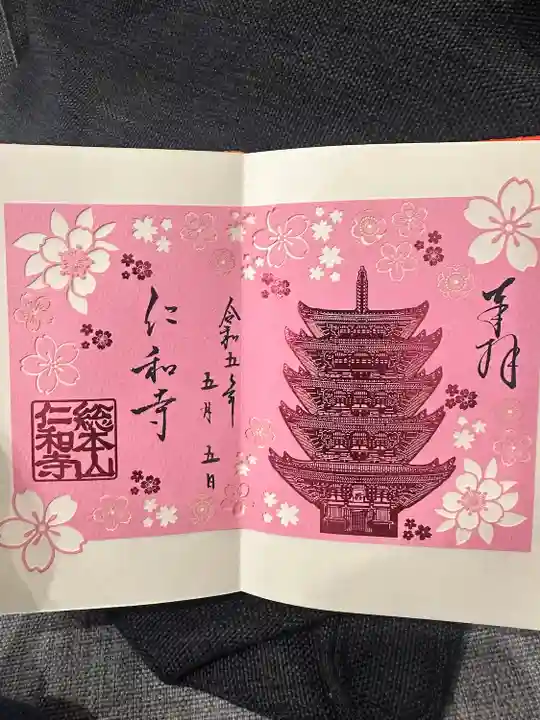 奉拝
令和五年
五月五日
仁和寺
総本山
仁和寺